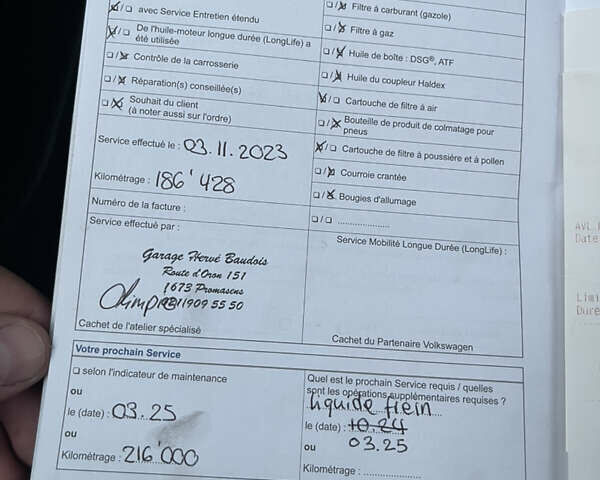 avec Service Entretien étendu
De l'huile-moteur longue durée (LongLife) a
été utilisée
Contrôle de la carrosserie
Réparation(s) conseillée(s)
Souhait du client
(à noter aussi sur l'ordre)
Service effectué le : 03.11.2023
Kilométrage : 186'428
Numéro de la facture :
Service effectué par :
Garage Hervé Baudois
Route d'Oron 151
1673 Promasens
909 55 50
Cachet de l'atelier spécialisé
Filtre à carburant (gazole)
Filtre à gaz
Huile de boîte : DSG®, ATF
Huile du coupleur Haldex
Cartouche de filtre à air
Bouteille de produit de colmatage pour
pneus
Cartouche de filtre à poussière et à pollen
Courroie crantée
Bougies d'allumage
Service Mobilité Longue Durée (LongLife) :
Cachet du Partenaire Volkswagen
Votre prochain Service
selon l'indicateur de maintenance
ou
le (date) : 03.25
ou
Kilométrage : 216'000
Quel est le prochain Service requis / quelles
sont les opérations supplémentaires requises ?
liquide frein
le (date) : 10.24
ou 03.25
Kilométrage :
AVL
Date